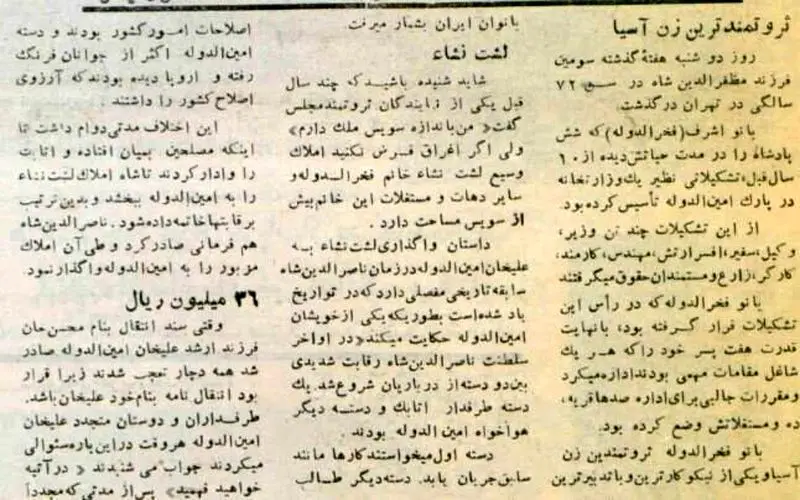 ثروتمندترین زن آسیا
روز دو شنبه هفتهٔ گذشته سومین
فرزند مظفرالدین شاه در سن ۷۲
سالگی در تهران درگذشت
بانو اشرف (فخرالدوله) که شش
پادشاه را در مدت حیاتش دیده از ۶۰
سال قبل، تشکیلاتی نظیر یك وزارتخانه
در پارك امین الدوله تأسیس کرده بود.
از این تشکیلات چند تن وزیر،
وکیل، سفیر، افسر ارتش، مهندس، کارمند،
کارگر، زارع و مستمندان حقوق میگرفتند
بانو فخرالدوله که در رأس این
تشکیلات قرار گرفته بود، با نهایت
قدرت هفت پسر خود را که هر یك
شاغل مقامات مهمی بودند اداره میکرد
و مقررات جالبی برای اداره صدها قریه،
ده و مستغلاتش وضع کرده بود.
بانو فخرالدوله ثروتمندین زن
آسیا و یکی از نیکوکارترین و با تدبیرترین
بانوان ایران بشمار میرفت
لشت نشاء
شاید شنیده باشید که چند سال
قبل یکی از نمایندگان ثروتمند مجلس
گفت «من باندازه سویس ملك دارم»
ولی اگر اغراق فرض نکنید املاك
وسیع لشت نشاء خانم فخرالدوله و
سایر دهات و مستغلات این خانم بیش
از سویس مساحت دارد.
داستان واگذاری لشت نشاء به
علیخان امین الدوله در زمان ناصرالدین شاه
سابقه تاریخی مفصلی دارد که در تواریخ
یاد شده است بطوریکه یکی از خویشان
امین الدوله حکایت میکند «در اواخر
سلطنت ناصرالدین شاه رقابت شدیدی
بین دو دسته از درباریان شروع شد. یك
دسته طرفدار اتابك و دسته دیگر
هواخواه امین الدوله بودند.
دسته اول میخواستند کارها مانند
سابق جریان یابد. دسته دیگر طالب
اصلاحات امور کشور بودند و دسته
امین الدوله اکثر از جوانان فرنگ
رفته و اروپا دیده بودند که آرزوی
اصلاح کشور را داشتند.
این اختلاف مدتی دوام داشت تا
اینکه مصلحین بمیان افتاده و اتابك
را وادار کردند تا شاه املاك لشت نشاء
را به امین الدوله ببخشد و بدین ترتیب
برقابتها خاتمه داده شود. ناصرالدین شاه
هم فرمانی صادر کرد و طی آن املاك
مزبور را به امین الدوله واگذار نمود.
۳۶ میلیون ریال
وقتی سند انتقال بنام محسن خان
فرزند ارشد علیخان امین الدوله صادر
شد همه دچار تعجب شدند زیرا قرار
بود انتقال نامه بنام خود علیخان باشد.
طرفداران و دوستان متجدد علیخان
امین الدوله هر وقت در این باره سئوالی
میکردند جواب می شنیدند «در آتیه
خواهید فهمید» پس از مدتی که مجدداً